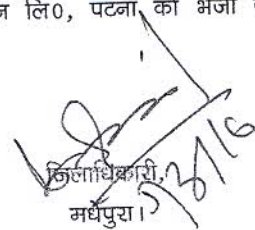 लि0, पटना को भेजी
जिलाधिकारी,
मधेपुरा।